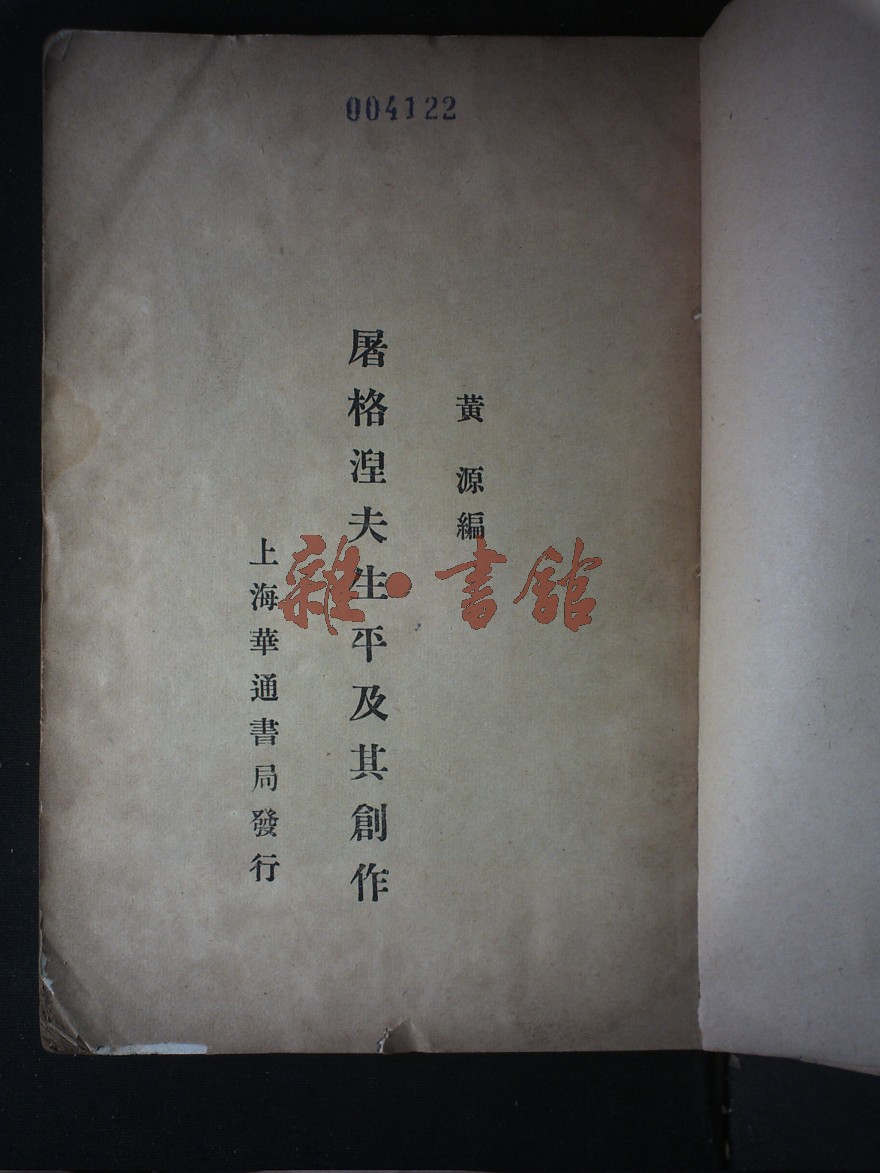 004122
黃源編
屠格湼夫生平及其創作
上海華通書局發行
雜·書館